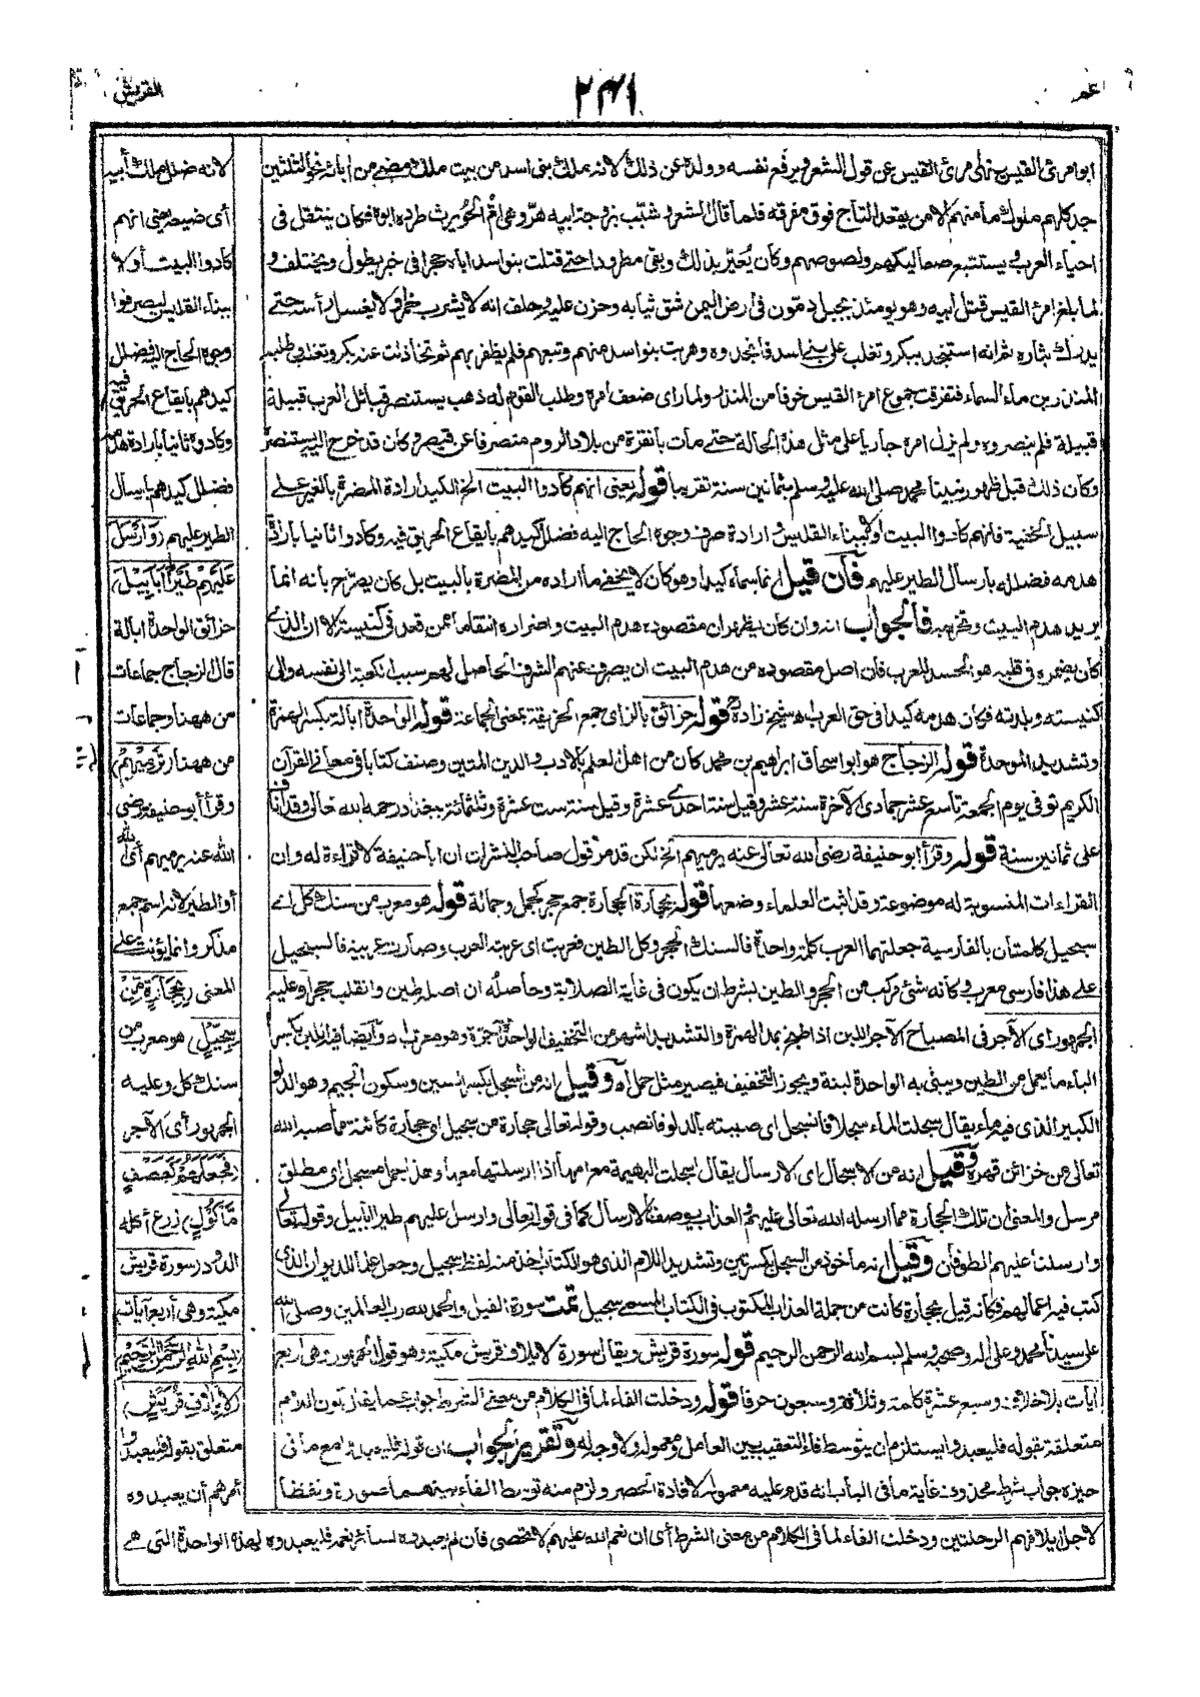 عم
٢٤١
القريش
ابو امرئ القيس نهى امرئ القيس عن قول الشعر ويرفع نفسه وولده عن ذلك لانه ملك بنى اسد من بيت ملك ومضى من ابائه نحو الثلثين
جد كلهم ملوك ما منهم الا من يعقد التاج فوق مفرقه فلما قال الشعر وشبب بزوجة ابيه هر وهى ام الحويرث طرده ابوه فكان ينتقل فى
احياء العرب ويستتبع صعاليكهم ولصوصهم وكان يعير بذلك وبقى مطرودا حتى قتلت بنو اسد اباه حجرا فى خبر يطول ويختلف و
لما بلغ امرء القيس قتل ابيه وهو يومئذ بجبل دمون فى ارض اليمن شق ثيابه وحزن عليه وحلف انه لا يشرب خمرا ولا يغسل رأسا حتى
يدرك بثاره ثم انه استنجد ببكر وتغلب على بنى اسد فانجدوه وهربت بنو اسد منهم وتبعهم فلم يظفر بهم ثم تخاذلت عنه بكر وتغلب وطلبه
المنذر بن ماء السماء فتفرقت جموع امرء القيس خوفا من المنذر ولما راى ضعف امره وطلب القوم له ذهب يستنصر قبائل العرب قبيلة
قبيلة فلم ينصروه ولم يزل امره جاريا على مثل هذه الحالة حتى مات بانقرة من بلاد الروم منصرفا عن قيصر وكان قد خرج اليه يستنصر
وكان ذلك قبل ظهور نبينا محمد صلى الله عليه وسلم بثمانين سنة تقريبا قوله يعنى انهم كادوا البيت الخ الكيد ارادة المضرة بالغير على
سبيل الخفية فانهم كادوا البيت اولا ببناء القليس و ارادة صرف وجوه الحاج اليه فضلل كيدهم بايقاع الحريق فيه وكادوا ثانيا بارادة
هدمه فضلل بارسال الطير عليهم فان قيل انما سماه كيدا وهو كان لا يخفى ما اراده من المضرة بالبيت بل كان يصرح بانه انما
يريد هدم البيت وتخريبه فالجواب انه وان كان يظهر ان مقصوده هدم البيت واضراره انتقاما عن قعد فى كنيسته الا ان الذى
كان يضمره فى قلبه هو الحسد للعرب فان اصل مقصوده من هدم البيت ان يصرف عنهم الشرف الحاصل لهم بسبب الكعبة الى نفسه والى
كنيسته وبلدته فكان هدمه كيدا فى حق العرب اه شيخ زاده قوله حزائق بالزاى جمع الحزيقة بمعنى الجماعة قوله الواحدة ابالة بكسر الهمزة
وتشديد الموحدة قوله الزجاج هو ابو اسحاق ابراهيم بن محمد كان من اهل العلم بالادب والدين المتين وصنف كتابا فى معانى القرآن
الكريم توفى يوم الجمعة تاسع عشر جمادى الآخرة سنة عشر وقيل سنة احدى عشرة وقيل سنة ست عشرة وثلثمائة ببغداد رحمه الله تعالى وقد اناف
على ثمانين سنة قوله وقرأ ابو حنيفة رضى الله تعالى عنه يرميهم الخ لكن قد مر قول صاحب النشر ان ابا حنيفة لا قراءة له وان
القراءات المنسوبة له موضوعة وقد اثبت العلماء وضعها قوله بحجارة الحجارة جمع حجر كجمل وجمالة قوله هو معرب من سنك كل اى
سجيل كلمتان بالفارسية جعلتهما العرب كلمة واحدة فالسنك الحجر وكل الطين فعربت اى عربته العرب وصارت عربية فالسجيل
على هذا فارسى معرب وكانه شئ مركب من الحجر والطين بشرط ان يكون فى غاية الصلابة وحاصله ان اصله طين وانقلب حجرا وعليه
الجمهور اى الآجر فى المصباح الآجر اللبن اذا طبخ بمد الهمزة والتشديد اشهر من التخفيف الواحدة آجرة وهو معرب اه وايضا فيه اللبن بكسر
الباء ما يعمل من الطين ويبنى به الواحدة لبنة ويجوز التخفيف فيصير مثل حمل اه وقيل انه من السجل بكسر السين وسكون الجيم وهو الدلو
الكبير الذى فيه ماء يقال سجلت الماء سجلا فانسجل اى صببته بالدلو فانصب وقوله تعالى حجارة من سجيل اى حجارة كائنة مما صبه الله
تعالى من خزائن قهره وقيل انه من الاسجال اى الارسال يقال اسجلت البهيمة مع امها اذا ارسلتها معها وهذا حمل مسجل اى مطلق
مرسل والمعنى ان تلك الحجارة مما ارسله الله تعالى عليهم والعذاب يوصف بالارسال كما فى قوله تعالى وارسل عليهم طيرا ابابيل وقوله تعالى
وارسلنا عليهم الطوفان وقيل انه مأخوذ من السجل بكسرتين وتشديد اللام الذى هو الكتاب اخذ منه لفظ سجيل وجعل علما للديوان الذى
كتب فيه اعمالهم فكانه قيل بحجارة كانت من جملة العذاب المكتوب فى الكتاب المسمى سجيل تمت سورة الفيل والحمد لله رب العالمين وصلى الله
على سيدنا محمد وعلى اله وصحبه وسلم بسم الله الرحمن الرحيم قوله سورة قريش ويقال سورة لايلاف قريش مكية وهو قول الجمهور وهى اربع
ايات بلا خلاف وسبع عشرة كلمة وثلاثة وسبعون حرفا قوله ودخلت الفاء لما فى الكلام من معنى الشرط جواب عما يقال كون اللام
متعلقة بقوله فليعبدوا يستلزم ان يتوسط فاء التعقيب بين العامل ومعموله ولا وجه له وتقرير الجواب ان قوله فليعبدوا مع ما فى
حيزه جواب شرط محذوف غاية ما فى الباب انه قدم عليه معموله لافادة الحصر ولزم منه توسط الفاء بينهما صورة ولفظا
لانه ضلل ملك أبيه
أى ضيعه يعنى انهم
كادوا البيت أولا
ببناء القليس ليصرفوا
وجوه الحاج اليه فضلل
كيدهم بايقاع الحريق فيه
وكادوه ثانيا بارادة هدمه
فضلل كيدهم بارسال
الطير عليهم (وَأَرْسَلَ
عَلَيْهِمْ طَيْرًا أَبَابِيلَ)
حزائق الواحدة ابالة
قال الزجاج جماعات
من ههنا وجماعات
من ههنا (تَرْمِيهِمْ)
وقرأ أبو حنيفة رضى
الله عنه يرميهم أى الله
أو الطير لانه اسم جمع
مذكر وانما يؤنث على
المعنى (بِحِجَارَةٍ مِنْ
سِجِّيلٍ) هو معرب من
سنك كل وعليه
الجمهور أى الآجر
(فَجَعَلَهُمْ كَعَصْفٍ
مَأْكُولٍ) زرع أكله
الدود (سورة قريش
مكية وهى أربع آيات)
(بِسْمِ اللَّهِ الرَّحْمَنِ الرَّحِيمِ)
(لِإِيلَافِ قُرَيْشٍ)
متعلق بقوله فليعبدوا
أمرهم أن يعبدوه
لاجل ايلافهم الرحلتين ودخلت الفاء لما فى الكلام من معنى الشرط أى ان نعم الله عليهم لا تحصى فان لم يعبدوه لسائر نعمه فليعبدوه لهذه الواحدة التى هى